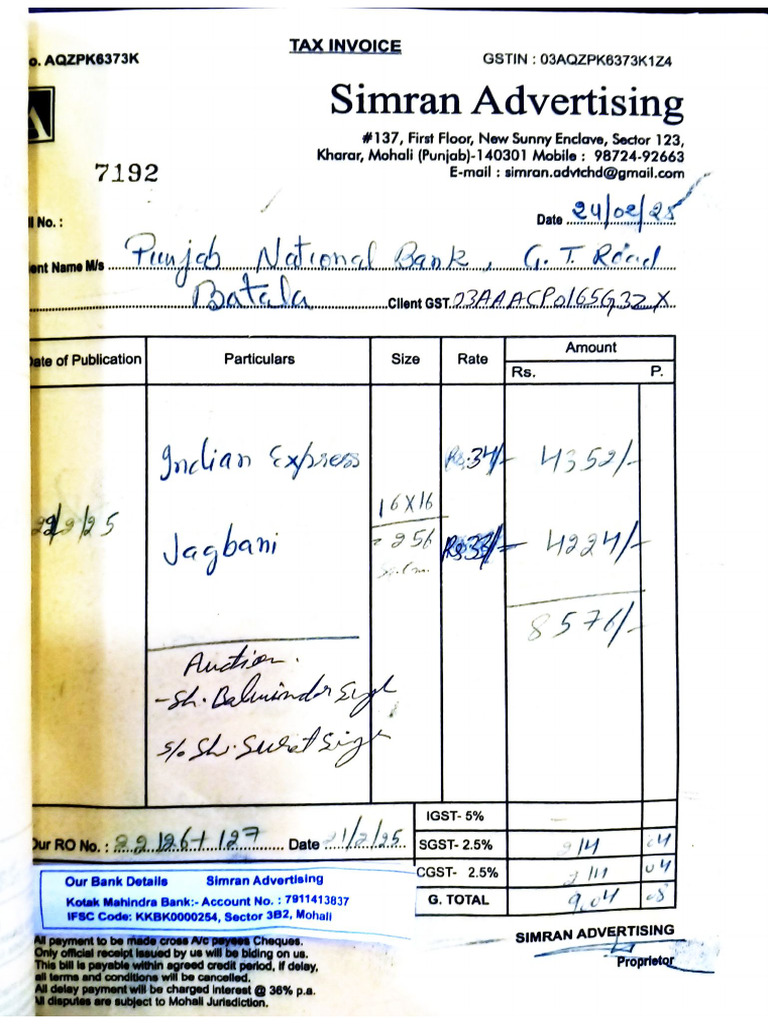 TAX INVOICE
o. AQZPK6373K
GSTIN : 03AQZPK6373K1Z4
A
Simran Advertising
#137, First Floor, New Sunny Enclave, Sector 123,
Kharar, Mohali (Punjab)-140301 Mobile : 98724-92663
E-mail : simran.advtchd@gmail.com
7192
ll No. :
Date 24/02/25
ent Name M/s Punjab National Bank, G.T. Road
Batala Client GST. 03AAACP0165G3ZX
ate of Publication Particulars Size Rate Amount
Rs. P.
Indian Express Rs.34/- 4352/-
16X16
22/2/25 = 256
Jagbani Rs33/- 4224/-
8576/-
Auction.
-Sh. Balwinder Singh
s/o Sh. Surat Singh
IGST- 5%
ur RO No. : 22126+127 Date 21/2/25
SGST- 2.5% 214 04
CGST- 2.5% 04
G. TOTAL 9,04 08
Our Bank Details Simran Advertising
Kotak Mahindra Bank:- Account No. : 7911413837
IFSC Code: KKBK0000254, Sector 3B2, Mohali
All payment to be made cross A/c payees Cheques.
Only official receipt issued by us will be biding on us.
This bill is payable within agreed credit period, if delay,
all terms and conditions will be cancelled.
All delay payment will be charged interest @ 36% p.a.
All disputes are subject to Mohali Jurisdiction.
SIMRAN ADVERTISING
Proprietor